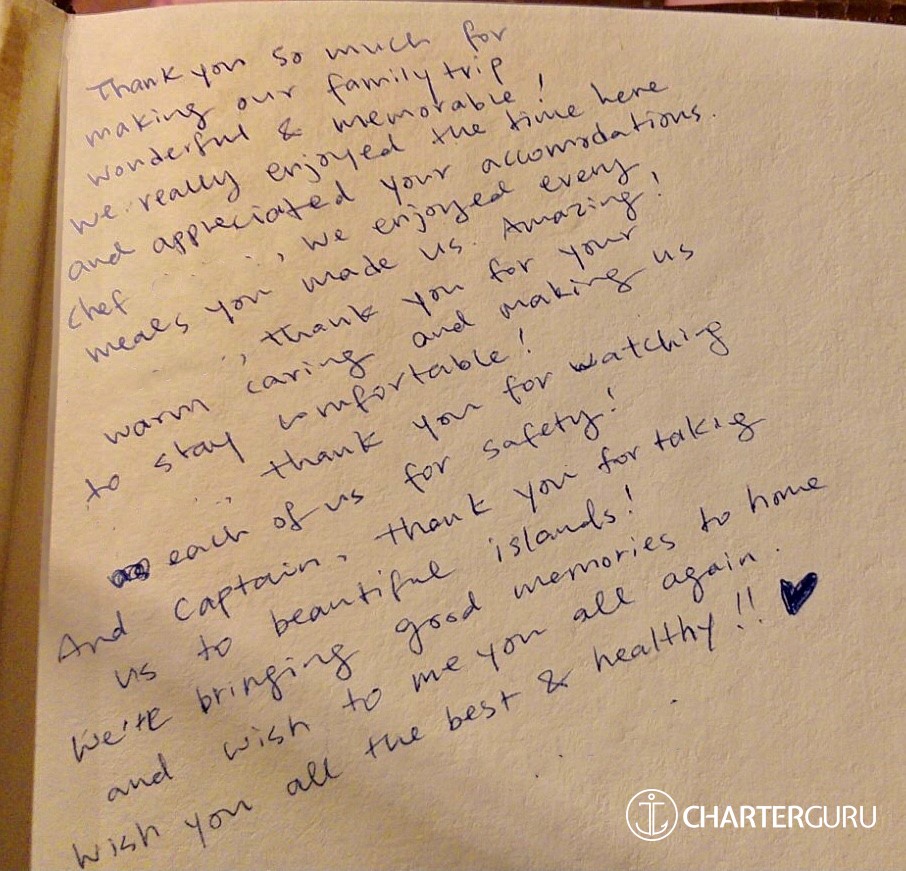 Thank you so much for
making our family trip
wonderful & memorable!
We really enjoyed the time here
and appreciated your accomodations.
Chef , we enjoyed every
meals you made us. Amazing!
, thank you for your
warm caring and making us
to stay comfortable!
, thank you for watching
each of us for safety!
And Captain, thank you for takig
us to beautiful islands!
We're bringing good memories to home
and wish to me you all again.
Wish you all the best & healthy!! ♥
CHARTERGURU